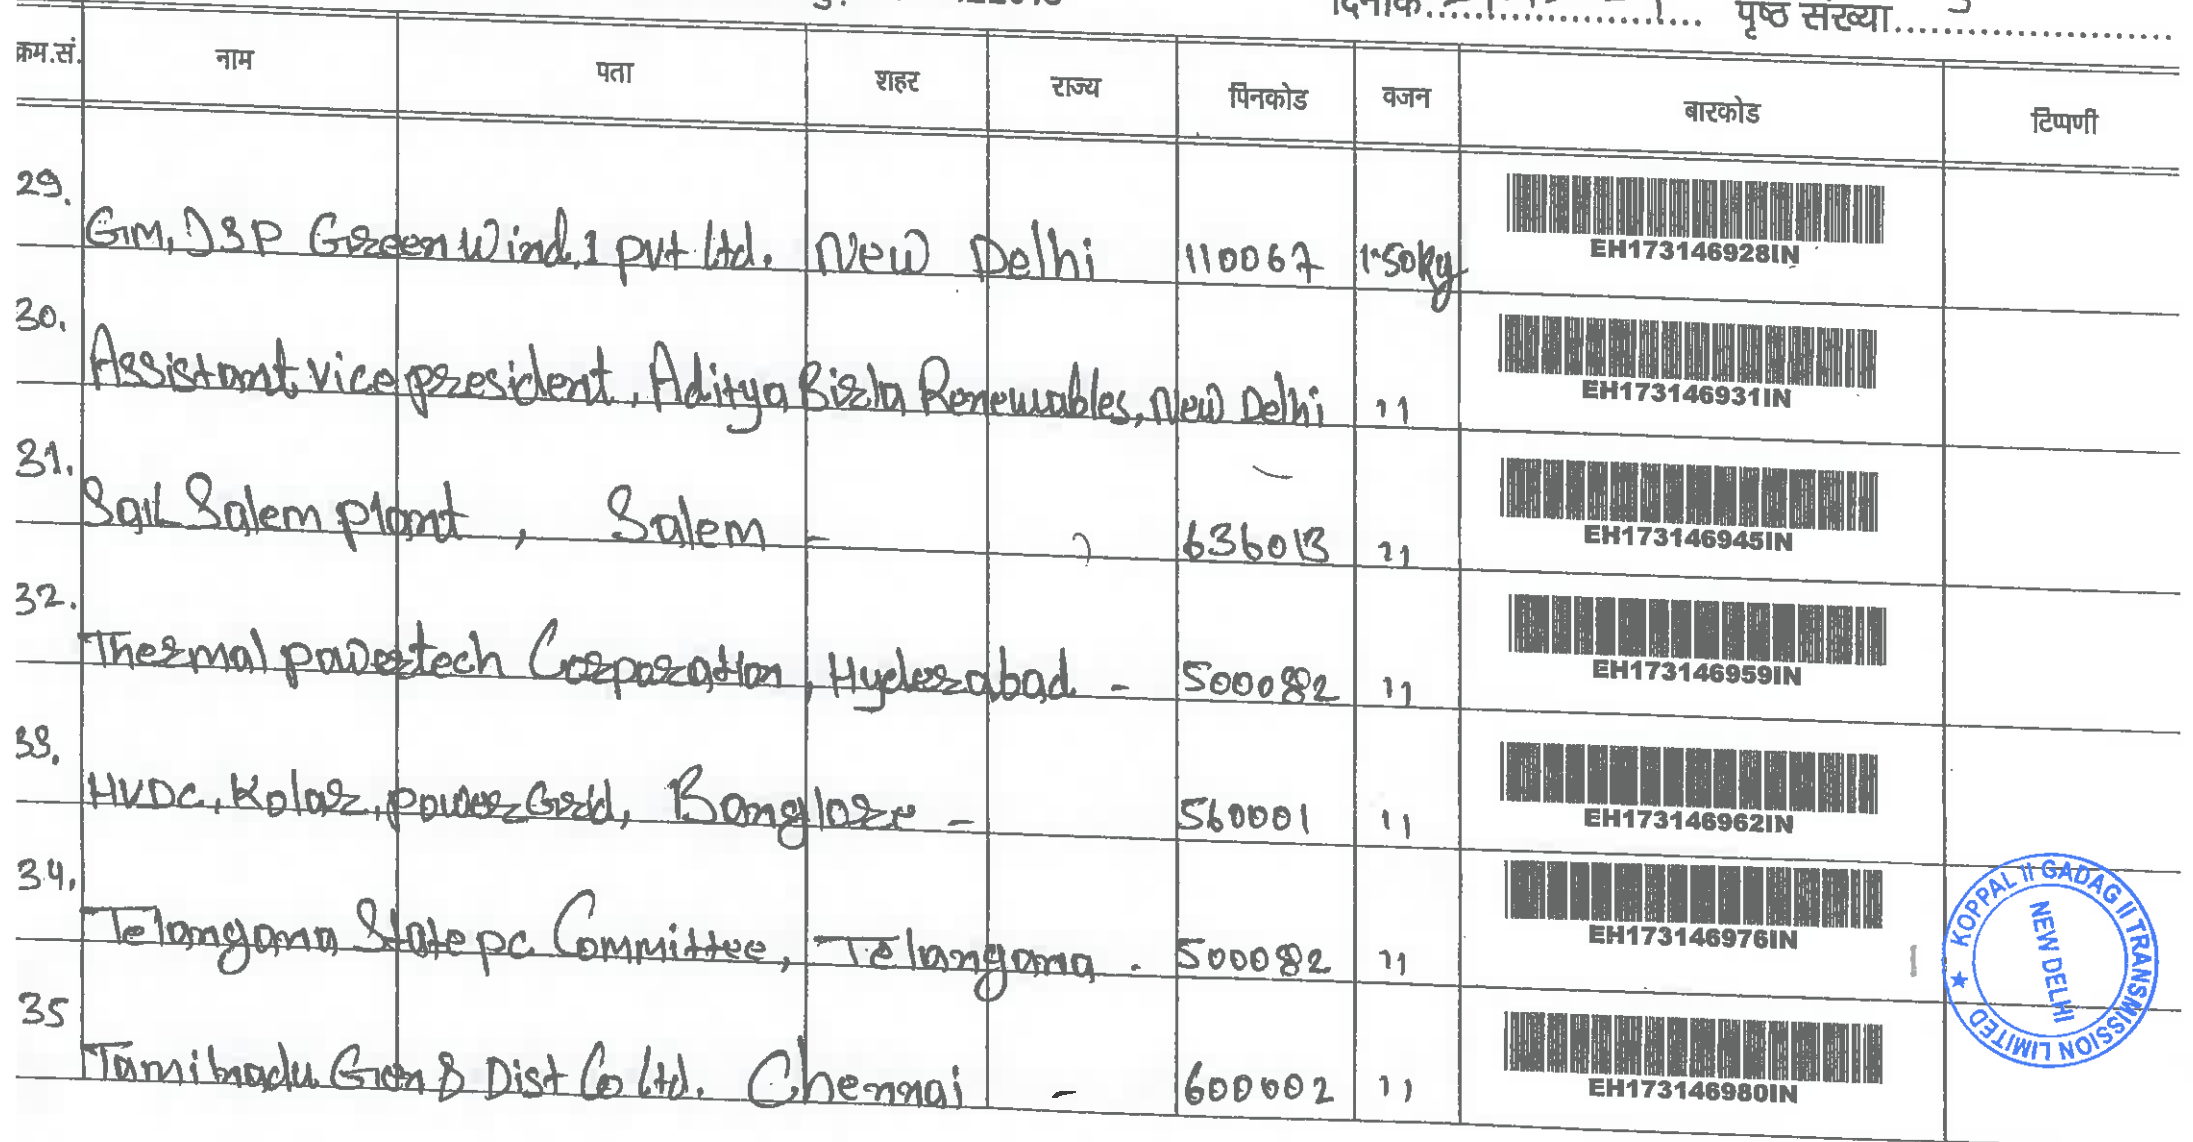 दिनांक पृष्ठ संख्या
क्रम.सं. नाम पता शहर राज्य पिनकोड वजन बारकोड टिप्पणी
29. GM, JSP Green Wind, 1 pvt Ltd. New Delhi 110067 1.50kg EH173146928IN
30. Assistant vice president, Aditya Birla Renewables, New Delhi 11 EH173146931IN
31. Sail Salem plant, Salem - 636013 11 EH173146945IN
32. Thermal powertech Corporation, Hyderabad - 500082 11 EH173146959IN
33. HVDC, Kolar, power Grid, Banglore - 560001 11 EH173146962IN
34. Telangana State pc Committee, Telangana - 500082 11 EH173146976IN
35 Tamilnadu Gen & Dist Co Ltd. Chennai - 600002 11 EH173146980IN
KOPPAL II GADAG II TRANSMISSION LIMITED ★
NEW DELHI